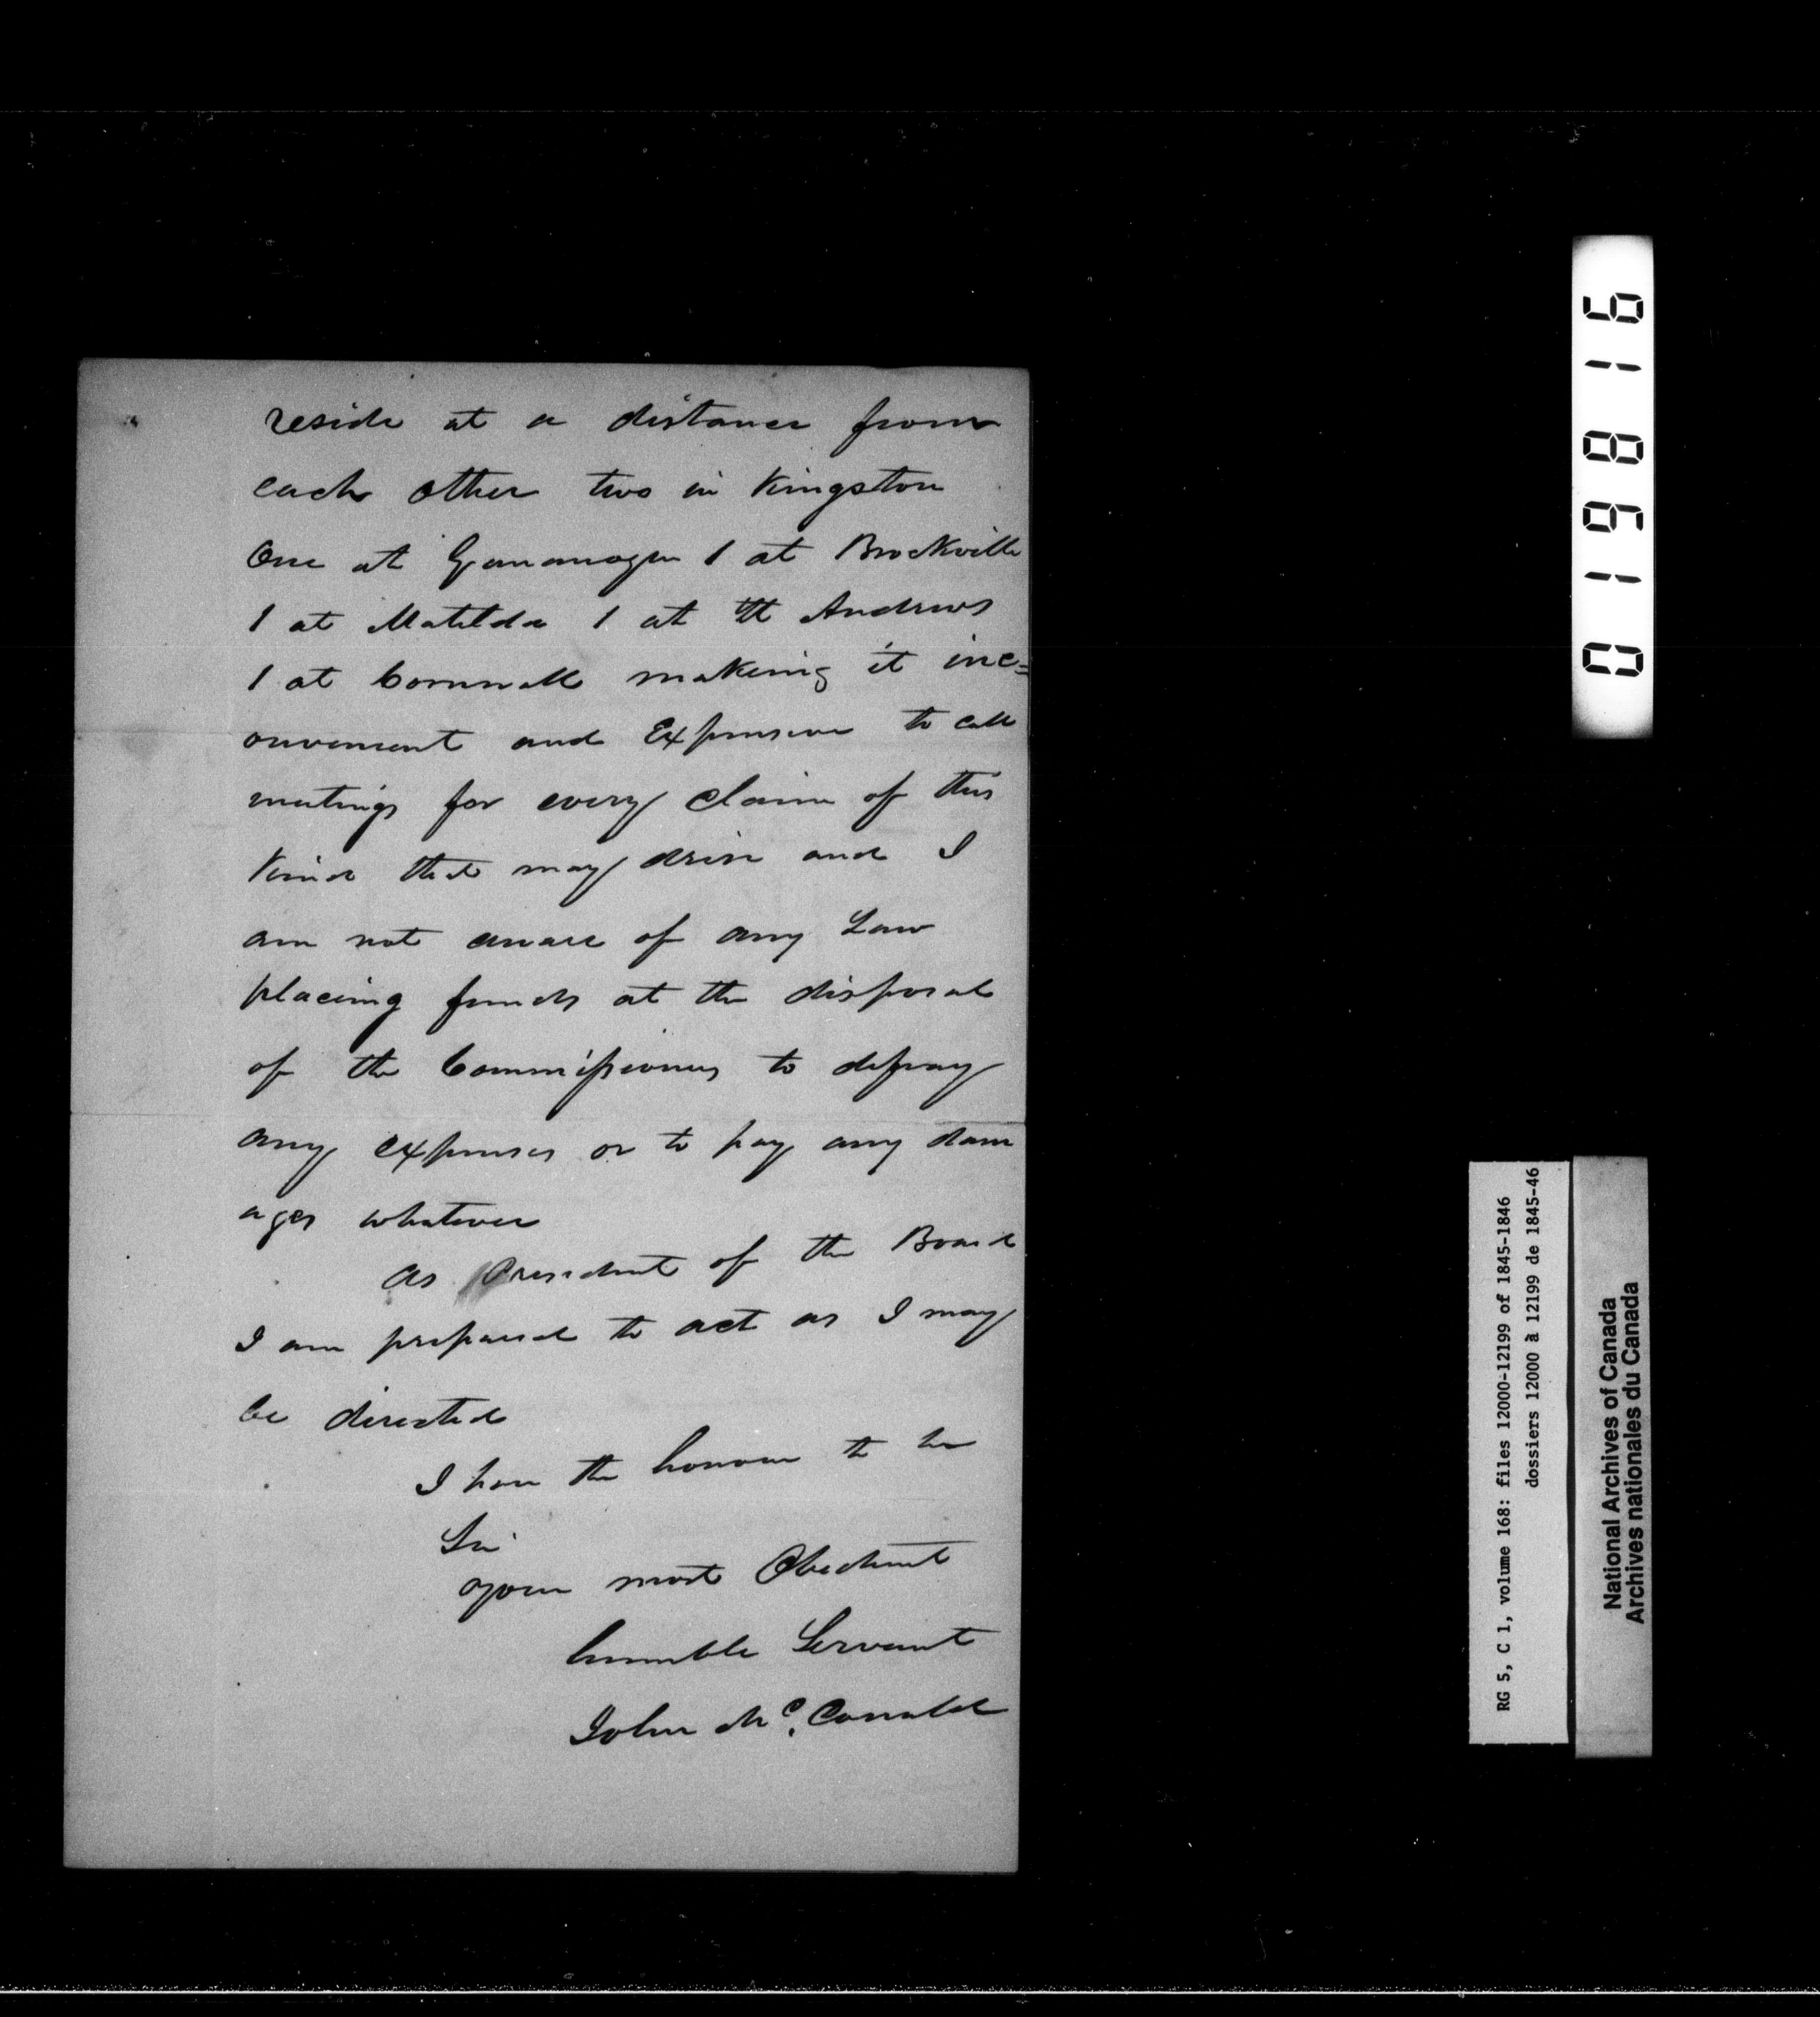 reside at a distance from
each other two in Kingston
One at Gananoque 1 at Brockville
1 at Matilda 1 at St Andrews
1 at Cornwall making it inc=
onvenient and Expensive to call
meetings for every claim of this
kind that may arise and I
am not aware of any Law
placing funds at the disposal
of the Commissioners to defray
any expenses or to pay any dam
ages whatever
As President of the Board
I am prepared to act as I may
be directed
I have the honour to be
Sir
your most Obedient
humble Servant
John McDonald
019816
RG 5, C 1, volume 168: files 12000-12199 of 1845-1846
dossiers 12000 à 12199 de 1845-46
National Archives of Canada
Archives nationales du Canada